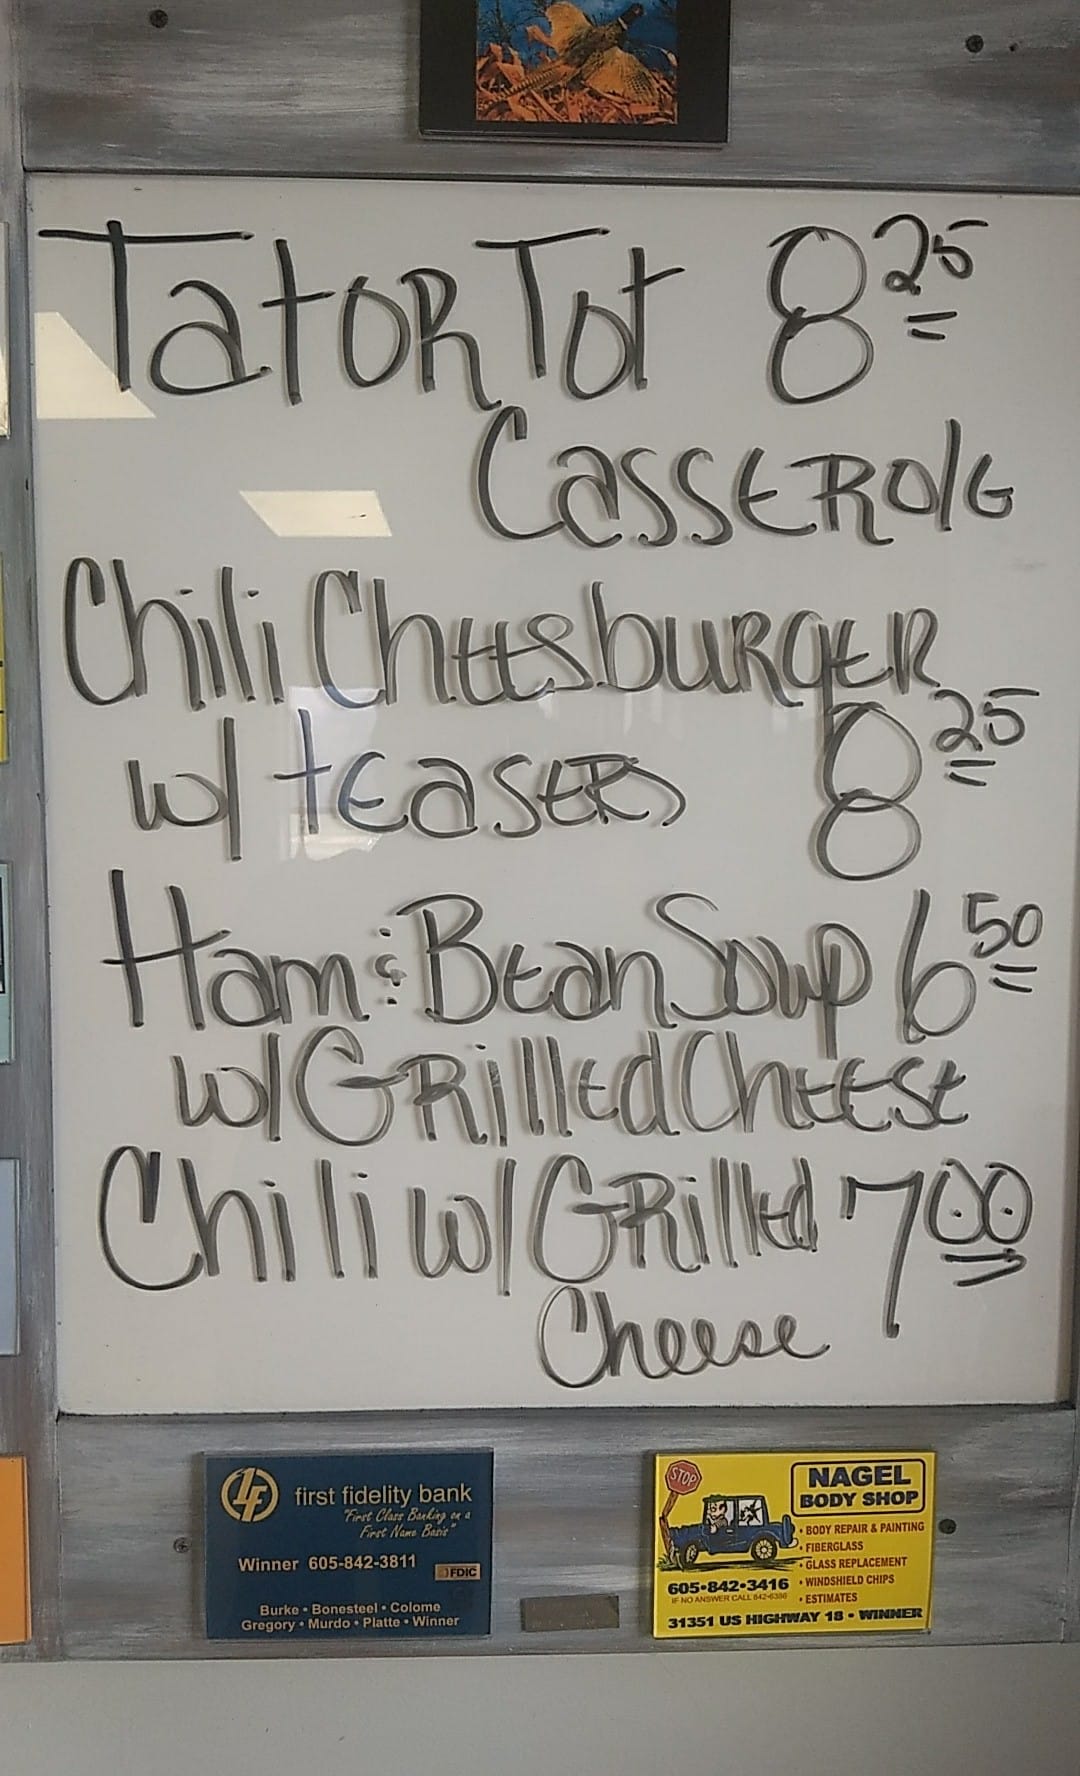 Tator Tot 8 25
Casserole
Chili Cheesburger
w/ teasers 8 25
Ham & Bean Soup 6 50
w/ Grilled Cheese
Chili w/ Grilled 7 00
Cheese
1F first fidelity bank
"First Class Banking on a
First Name Basis"
Winner 605-842-3811
FDIC
Burke • Bonesteel • Colome
Gregory • Murdo • Platte • Winner
STOP
NAGEL
BODY SHOP
• BODY REPAIR & PAINTING
• FIBERGLASS
• GLASS REPLACEMENT
• WINDSHIELD CHIPS
• ESTIMATES
605•842•3416
IF NO ANSWER CALL 842-6386
31351 US HIGHWAY 18 • WINNER